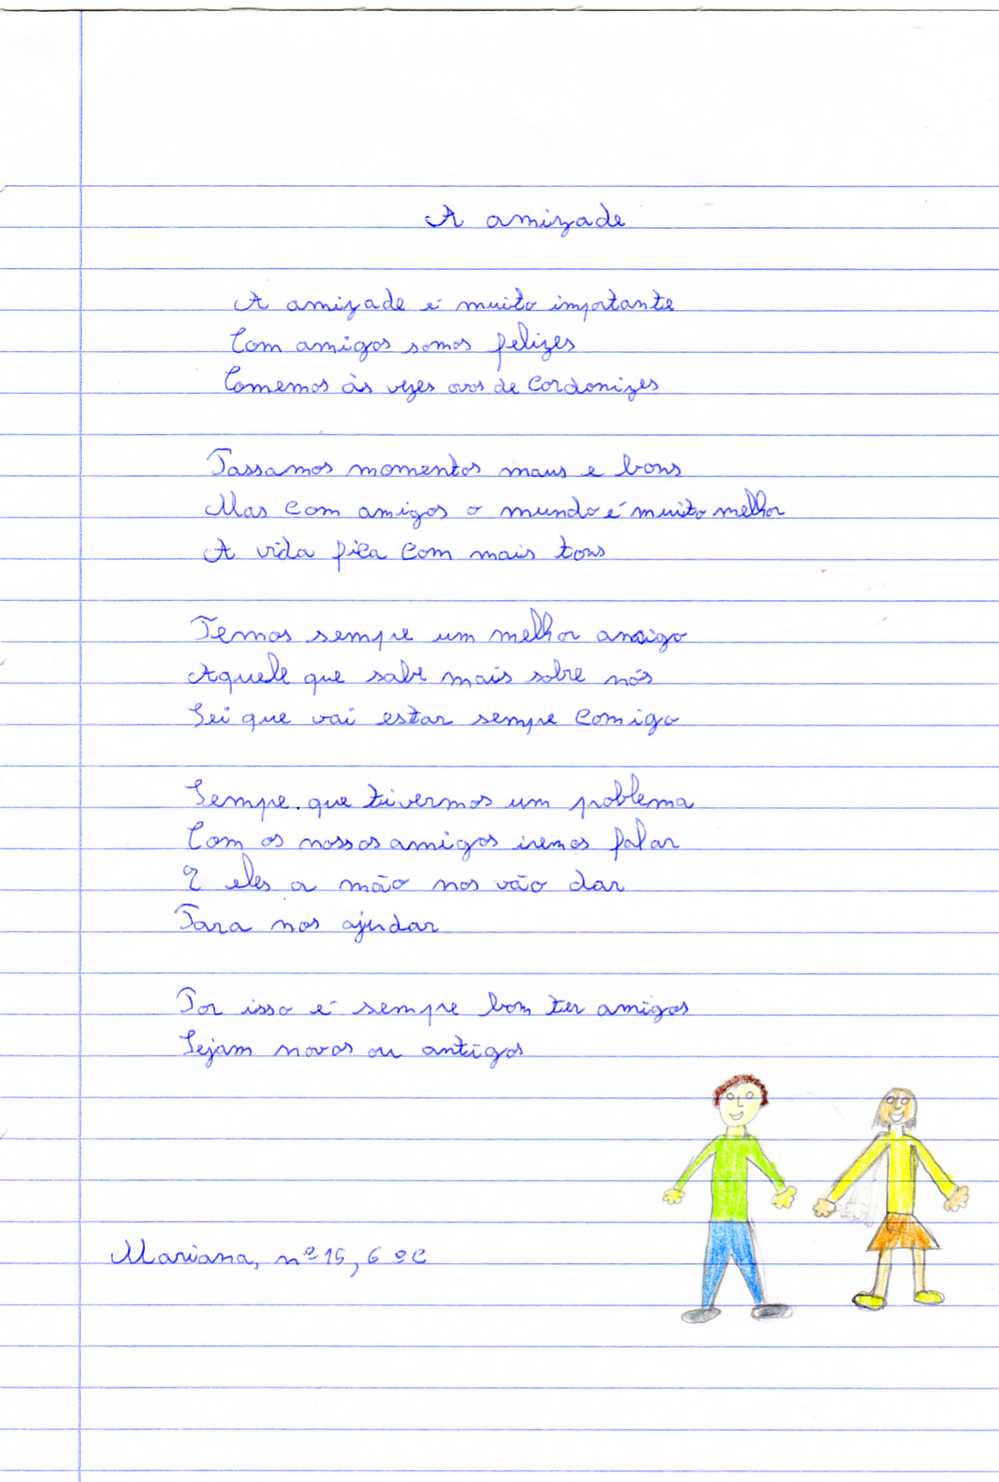 A amizade
A amizade é muito importante
Com amigos somos felizes
Comemos às vezes ovos de Cordonizes
Passamos momentos maus e bons
Mas com amigos o mundo é muito melhor
A vida fica com mais tons
Temos sempre um melhor amigo
Aquele que sabe mais sobre nós
Sei que vai estar sempre comigo
Sempre que tivermos um problema
Com os nossos amigos iremos falar
E eles a mão nos vão dar
Para nos ajudar
Por isso é sempre bom ter amigos
Sejam novos ou antigos
Mariana, nº 15, 6ºC